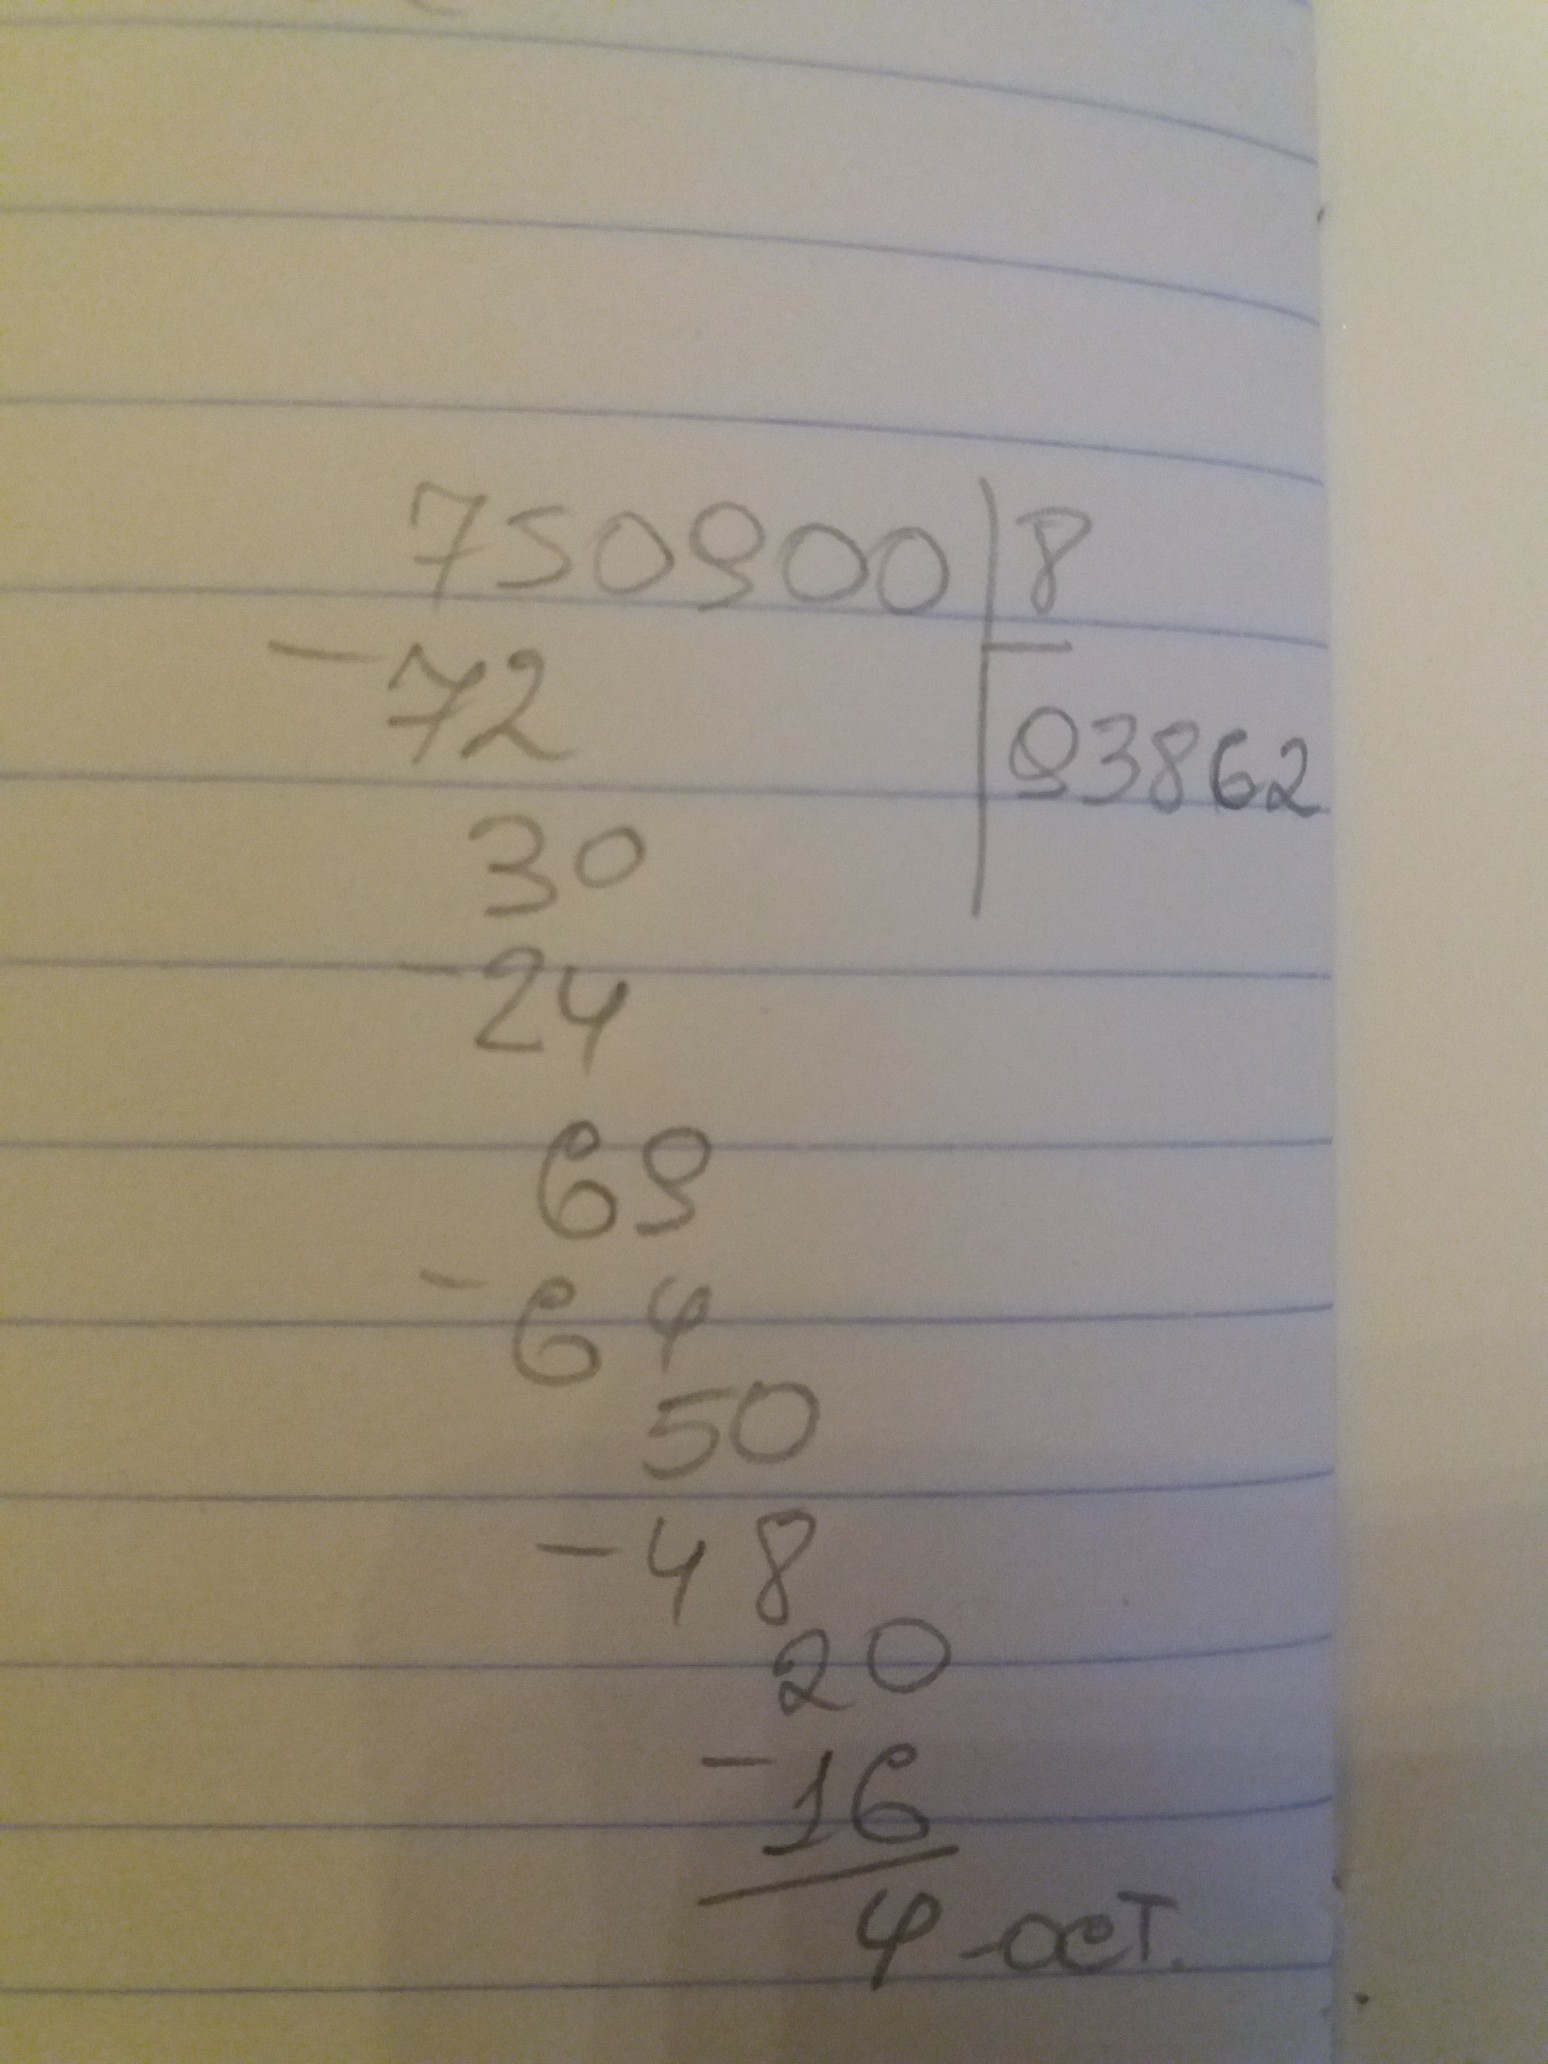 750900 8
-72
93862
30
-24
69
-64
50
-48
20
-16
4-ост.